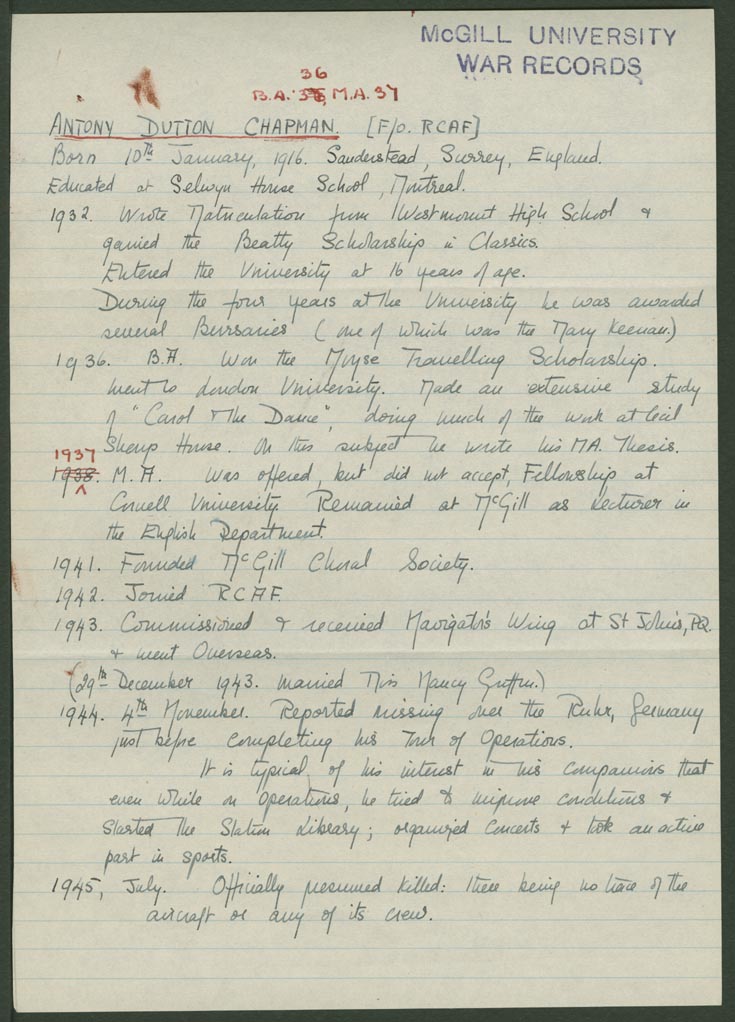 McGILL UNIVERSITY
WAR RECORDS
36
B.A. 35, M.A. 37
ANTONY DUTTON CHAPMAN. [F/O. RCAF]
Born 10th January, 1916. Sanderstead, Surrey, England.
Educated at Selwyn House School, Montreal.
1932. Wrote Matriculation from Westmount High School &
gained the Beatty Scholarship in Classics.
Entered the University at 16 years of age.
During the four years at the University he was awarded
several Bursaries (one of which was the Mary Keenan.)
1936. B.A. Won the Moyse Travelling Scholarship.
Went to London University. Made an extensive study
of "Carol & the Dance", doing much of the work at Cecil
Sharp House. On this subject he wrote his MA. Thesis.
1937
1938. M.A. Was offered, but did not accept, Fellowship at
Cornell University. Remained at McGill as Lecturer in
the English Department.
1941. Founded McGill Choral Society.
1942. Joined RCAF.
1943. Commissioned & received Navigator's Wing at St John's, P.Q.
& went Overseas.
(29th December 1943. Married Miss Nancy Griffin.)
1944. 4th November. Reported missing over the Ruhr, Germany
just before completing his Tour of Operations.
It is typical of his interest in his companions that
even while on Operations, he tried to improve conditions &
started the Station Library; organized Concerts & took an active
part in sports.
1945, July. Officially presumed killed: there being no trace of the
aircraft or any of its crew.